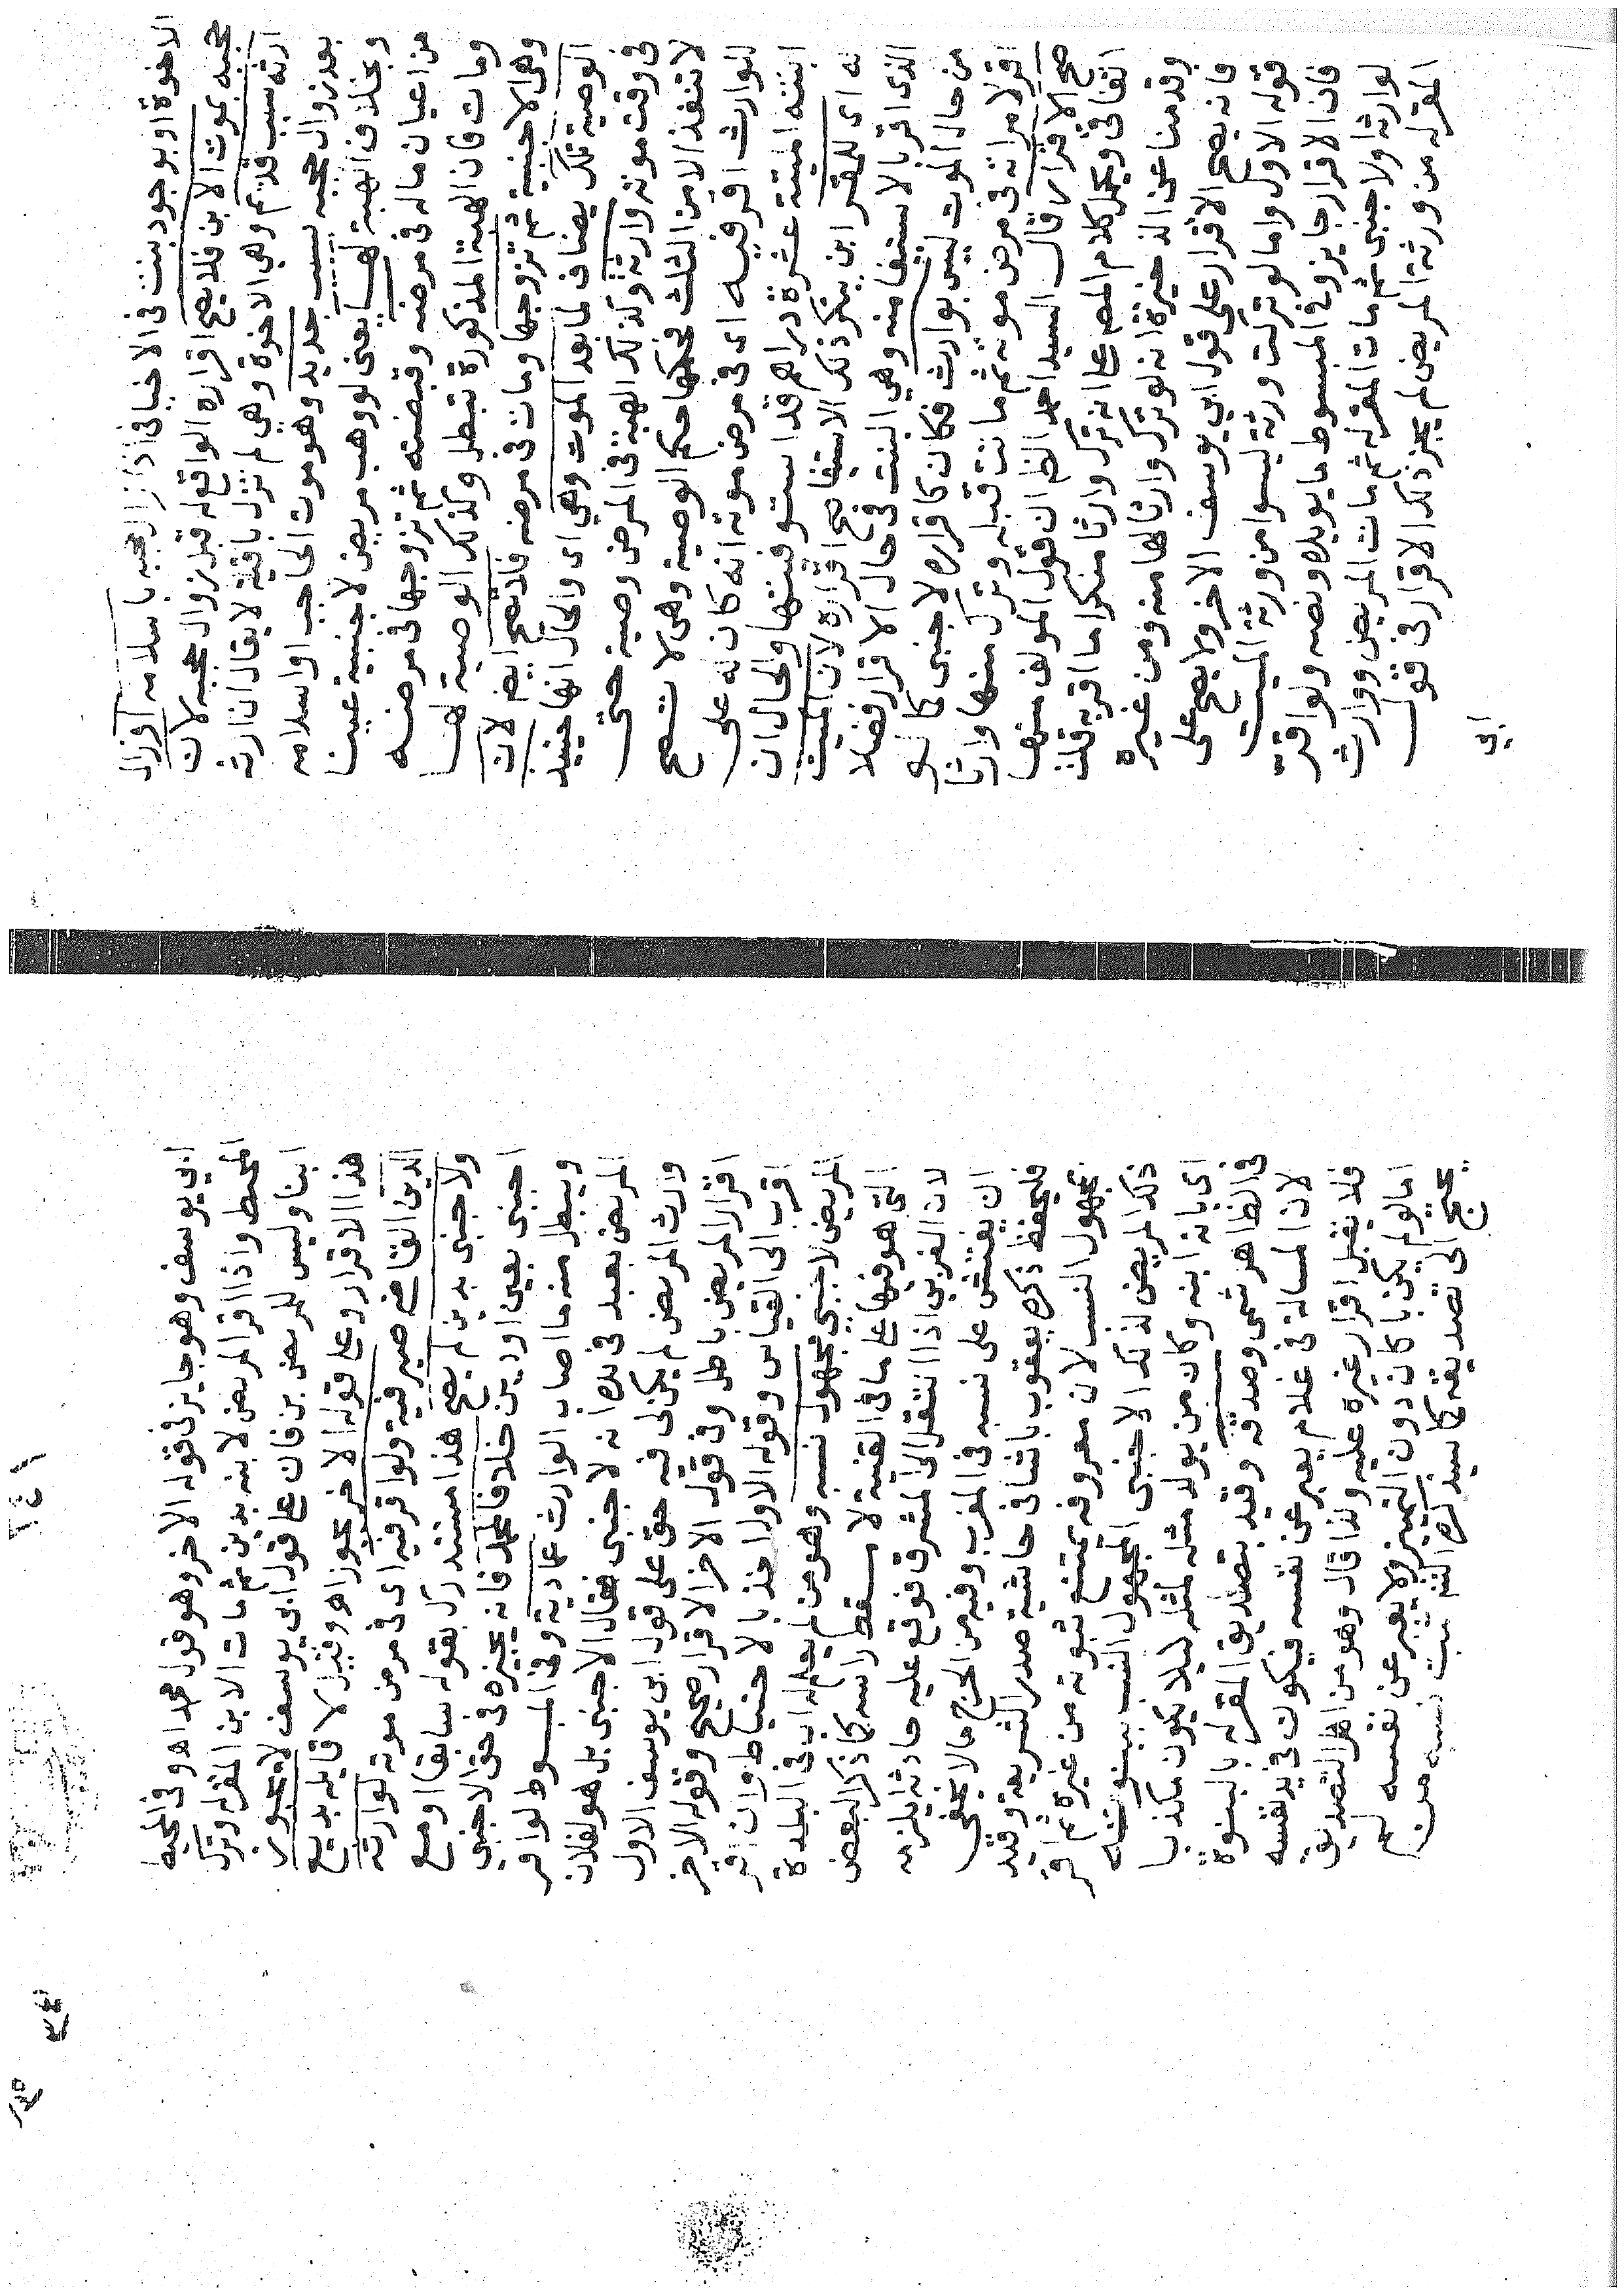 الاخوة او بوجود بنت في الاخيافي اذا زال حجبه باسلامه او زال
حجبه بموت الابن فلا يصح اقراره الواقع له قبل زوال حجبه لان
ارثه سبب قديم وهي الاخوة وهي لم تزل باقية لا يقال ان ارثه
بعد زوال حجبه بسبب جديد وهو موت الحاجب او اسلامه
وبخلاف الهبة لها يعني لو وهب مريض لاجنبية عينا
من اعيان ماله في مرضه وقبضته ثم تزوجها في مرضه
ومات فان الهبة المذكورة تبطل وكذلك الوصية لها
وهي الاجنبية ثم تزوجها ومات في مرضه فلا تصح ايضا لان
الوصية تمليك يضاف لما بعد الموت وهي اي والحال انها حينئذ
في وقت موته وارثة وكذلك الهبة في المرض وصية حتى
لا تنفذ الا من الثلث فحكمها حكم الوصية وهي لا تصح
لوارث اقر فيه اي في مرض موته انه كان له على
ابنته الميتة عشرة دراهم قد استوفيتها والحال ان
له اي للمقر ابن ينكر ذلك الاستيفا صح اقراره لان الميت
الذي اقر بالاستيفا منه وهي البنت في حال الاقرار فضلا
من حال الموت ليس بوارث فكان كاقراره لاجنبي كما لو
اقر لامراته في مرض موته ثم ماتت قبله وترك منها وارثا
صح الاقرار قال السيد احمد الظاهر ان قول المولف منها
اتفاقي ويحمل كلام المص على انه ترك وارثا منكرا ما اقر به قلت
وقدمنا عن الذخيرة انه لو ترك وارثا لها منه ومن غيره
فانه يصح الاقرار على قول ابي يوسف الاخر ولا يصح على
قوله الاول واما لو تركت ورثة ليسوا من ورثة الميت
فان الاقرار جايز وفي المبسوط ما يويده ونصه ولو اقر
لوارثه ولاجنبي ثم مات المقر له ثم مات المريض ووارث
المقر له من ورثة المريض لم يجز ذلك الاقرار في قول
ابي يوسف وهو جايز في قوله الاخر وهو قول محمد اه وفي المحيط
المحيط واذا اقر المريض لابنه بدين ثم مات الابن المقر له وترك
ابنا وليس للمريض ابن فان على قول ابي يوسف لا يجوز
هذا الاقرار وعلى قوله الاخر يجوز اه وقيل لا قايله بديع
الدين القاضي صيرفية ولو اقر فيه اي في مرض موته لوارثه
ولاجنبي بدين لم يصح هذا مستدرك بقوله سابقا او مع
اجنبي بعين او دين خلافا لمحمد فانه يجيزه في حق الاجنبي
ويبطل منه ما اصاب الوارث عمادية وفي المبسوط لو اقر
المريض بعبد في يده انه لاجنبي فقال الاجنبي بل هو لفلان
وارث المريض لم يكن لي فيه حق على قول ابي يوسف الاول
اقرار المريض باطل وفي قوله الاخر الاقرار صحيح وقوله الاخر
اقرب الى القياس وقوله الاول اخذ بالاحتياط وان اقر
المريض لاجنبي مجهول نسبه وهو من لم يعلم له اب في البلدة
التي هو فيها على ما في القنية لا مسقط راسه كما ذكر البعض
لان الغربي اذا انتقل الى المشرق فوقع عليه حادثة يلزمه
ان يفتش على نسبه في المغرب وفيه من الحرج ما لا يخفى
فليحفظ ذكره يعقوب باشا في حاشية صدر الشريعة وقيد
بمجهول النسب لان معروفه يمتنع ثبوته من غيره ثم اقر
ذلك المريض لذلك الاجنبي المجهول النسب ببنوته
اي بانه ابنه وكان من يولد مثله لمثله ليلا يكون مكذبا
في الظاهر شي وصدقه وقيد بتصديق المقر له بالبنوة
لان المسالة في غلام يعبر عن نفسه فيكون في يد نفسه
فلا يقبل اقرار غيره عليه ولذا قال وهو من اهل التصديق
اما لو لم يكن بان كان دون التمييز ولا يعبر عن نفسه لم
يحتج الى تصديقه كما سيذكره الش ثبت نسبه من